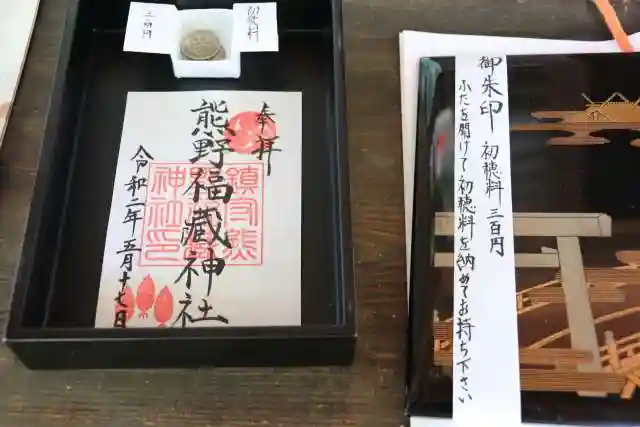 三百円
初穂料
奉拝
熊野福藏神社
令和二年五月十七日
御朱印 初穂料 三百円
ふたを開けて初穂料を納めてお持ち下さい